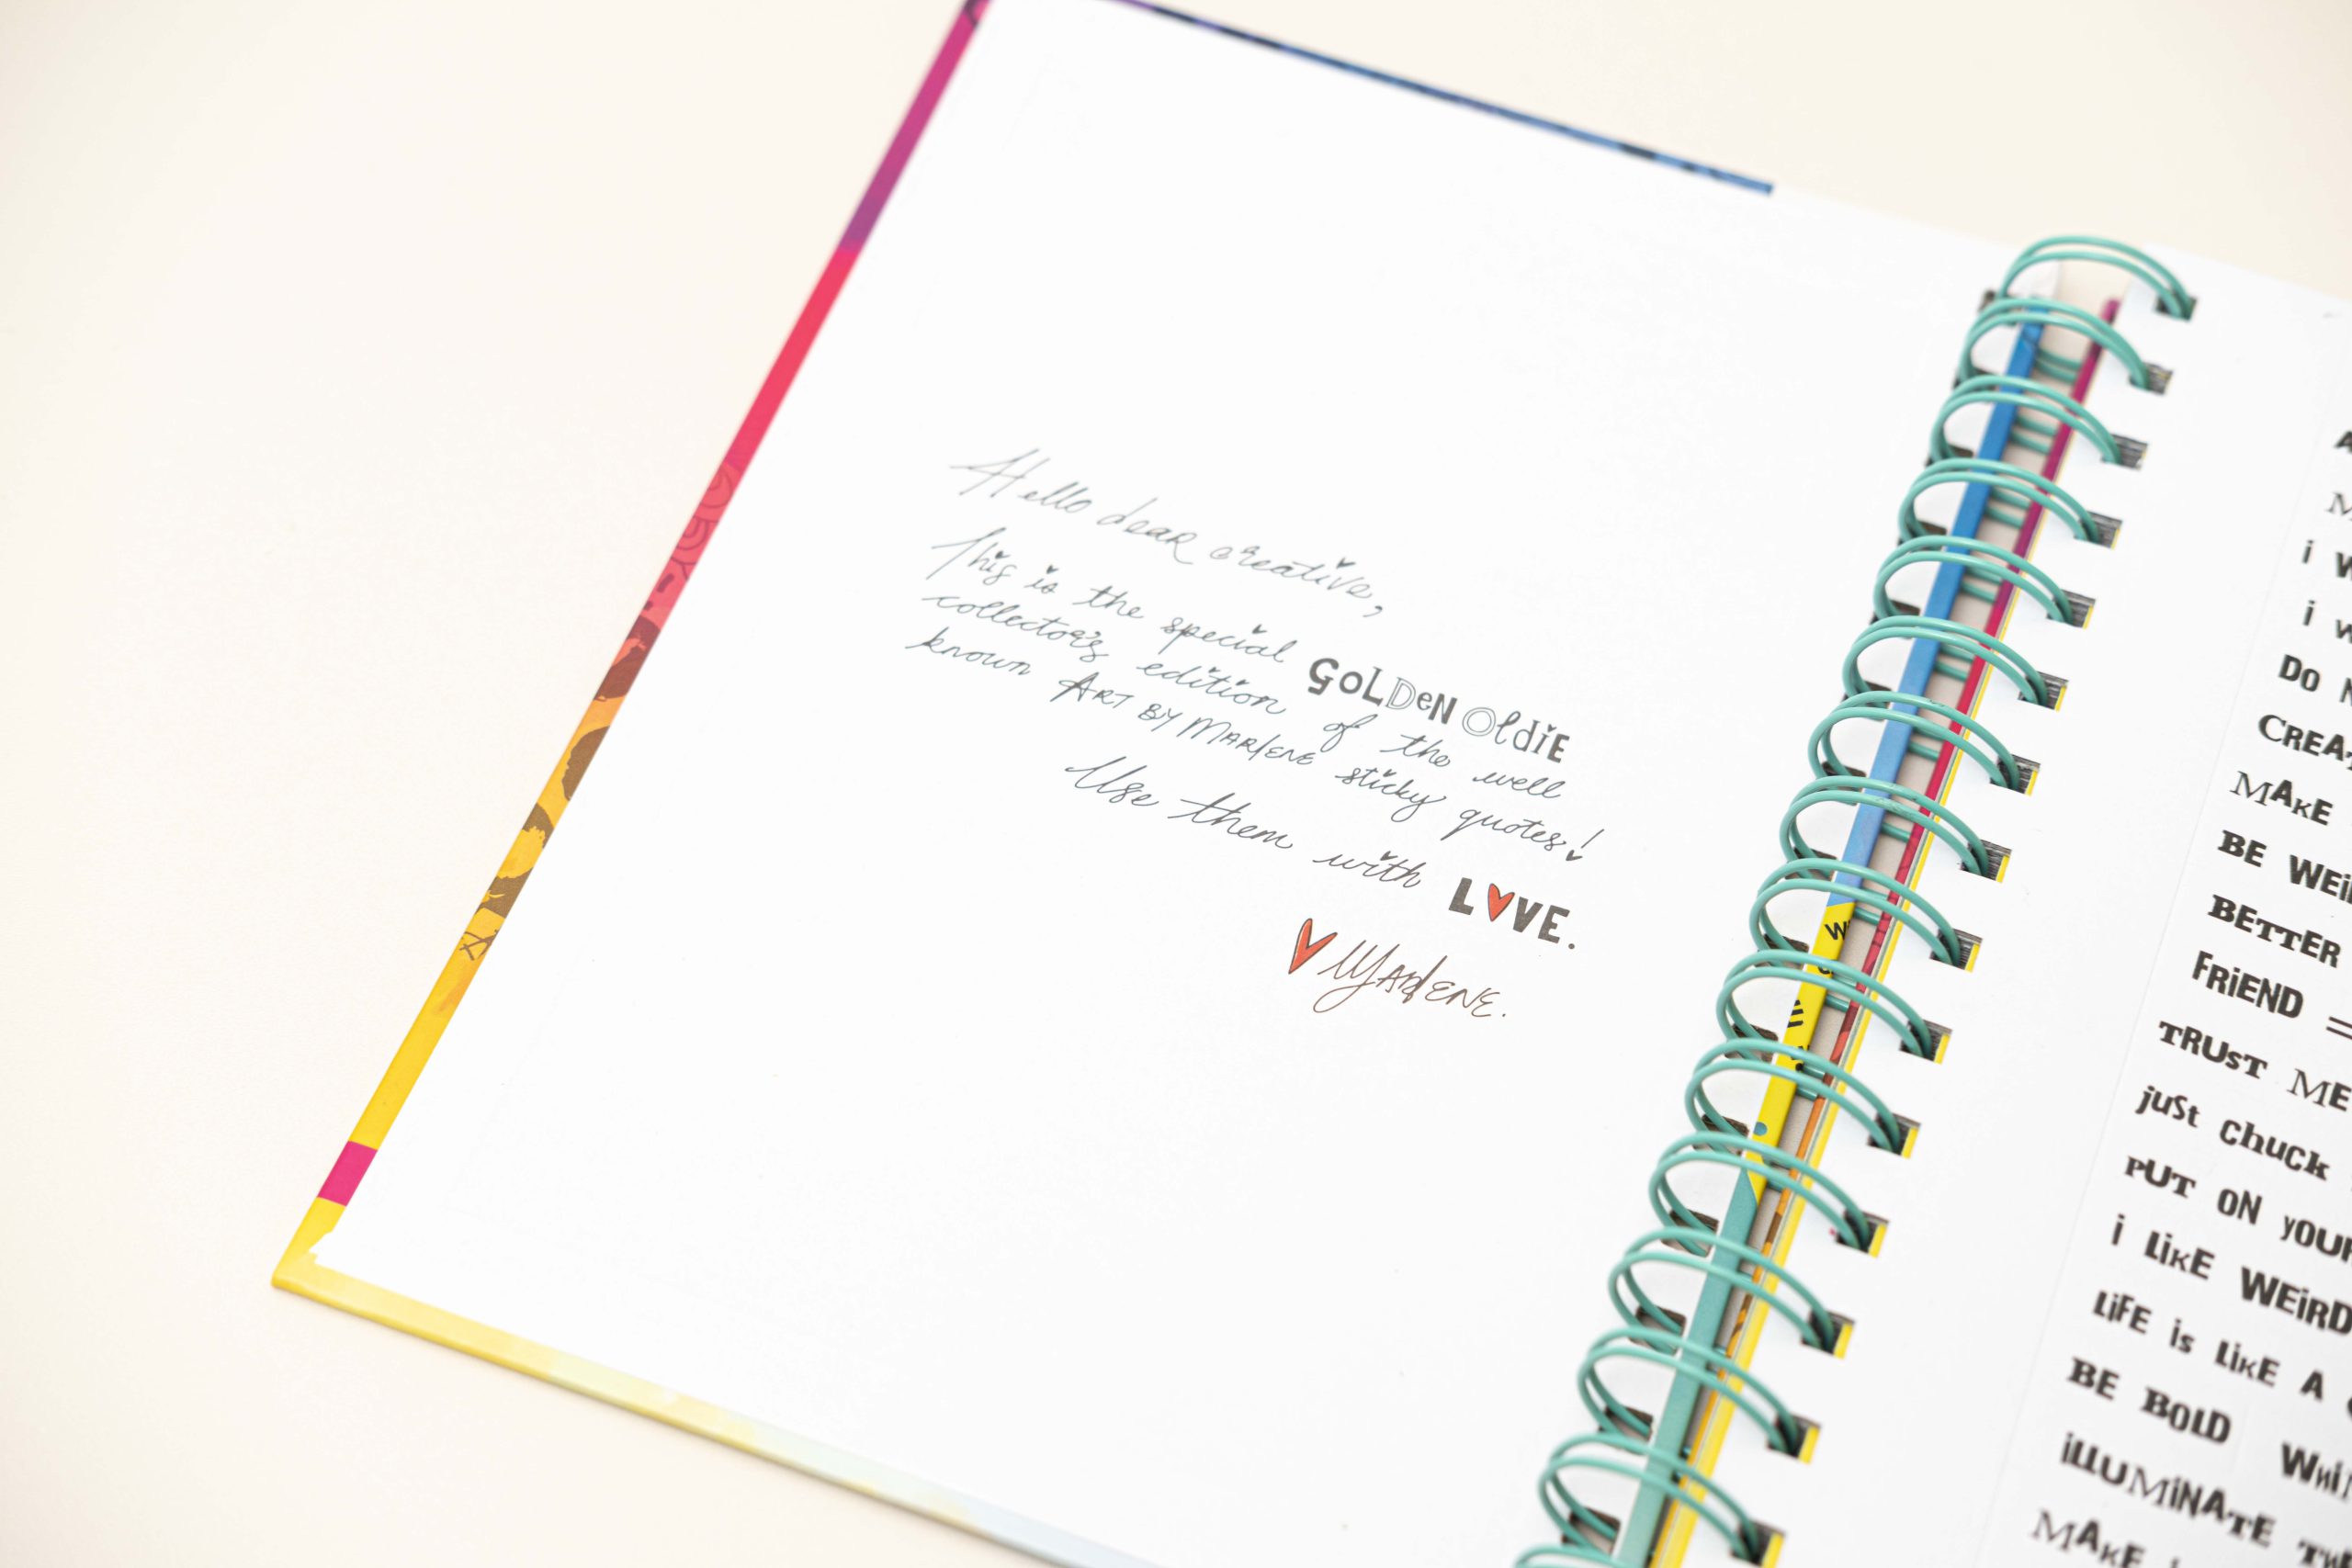 Hello dear creative,
This is the special GOLDEN OldiE
collector's edition of the well
known ART BY MARlENE sticky quotes!
Use them with LOVE.
MARlENE.
i
i
DO
CREA
MAKE
BE WEi
BETTER
FRiEND =
TRUST ME
just chuck
PUT ON YOUR
i LiKE WEiRD
LiFE is LiKE A
BE BOLD
iLLUMiNATE
MAKE